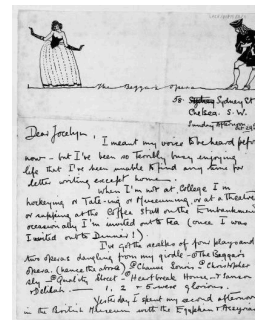 The Beggar's Opera
58. Sydney St
Chelsea. S.W.
Sunday afternoon
Dear Jocelyn,
I meant my voice to be heard before
now – but I've been so terribly busy enjoying
life that I've been unable to find any time for
letter writing except home.
When I'm not at College I'm
hockeying or Tate-ing or Museuming, or at a theatre
or supping at the Coffee Stall on the Embankment
occasionally I'm invited out to tea (once I was
invited out to Dinner!).
I've got the scalps of four plays and
two operas dangling from my girdle – The Beggar's
Opera. (hence the above)
Quality Street – Heartbreak House – & Samson
& Delilah – 1, 2 & 5 were glorious.
Yesterday I spent my second afternoon
in the British Museum with the Egyptian &